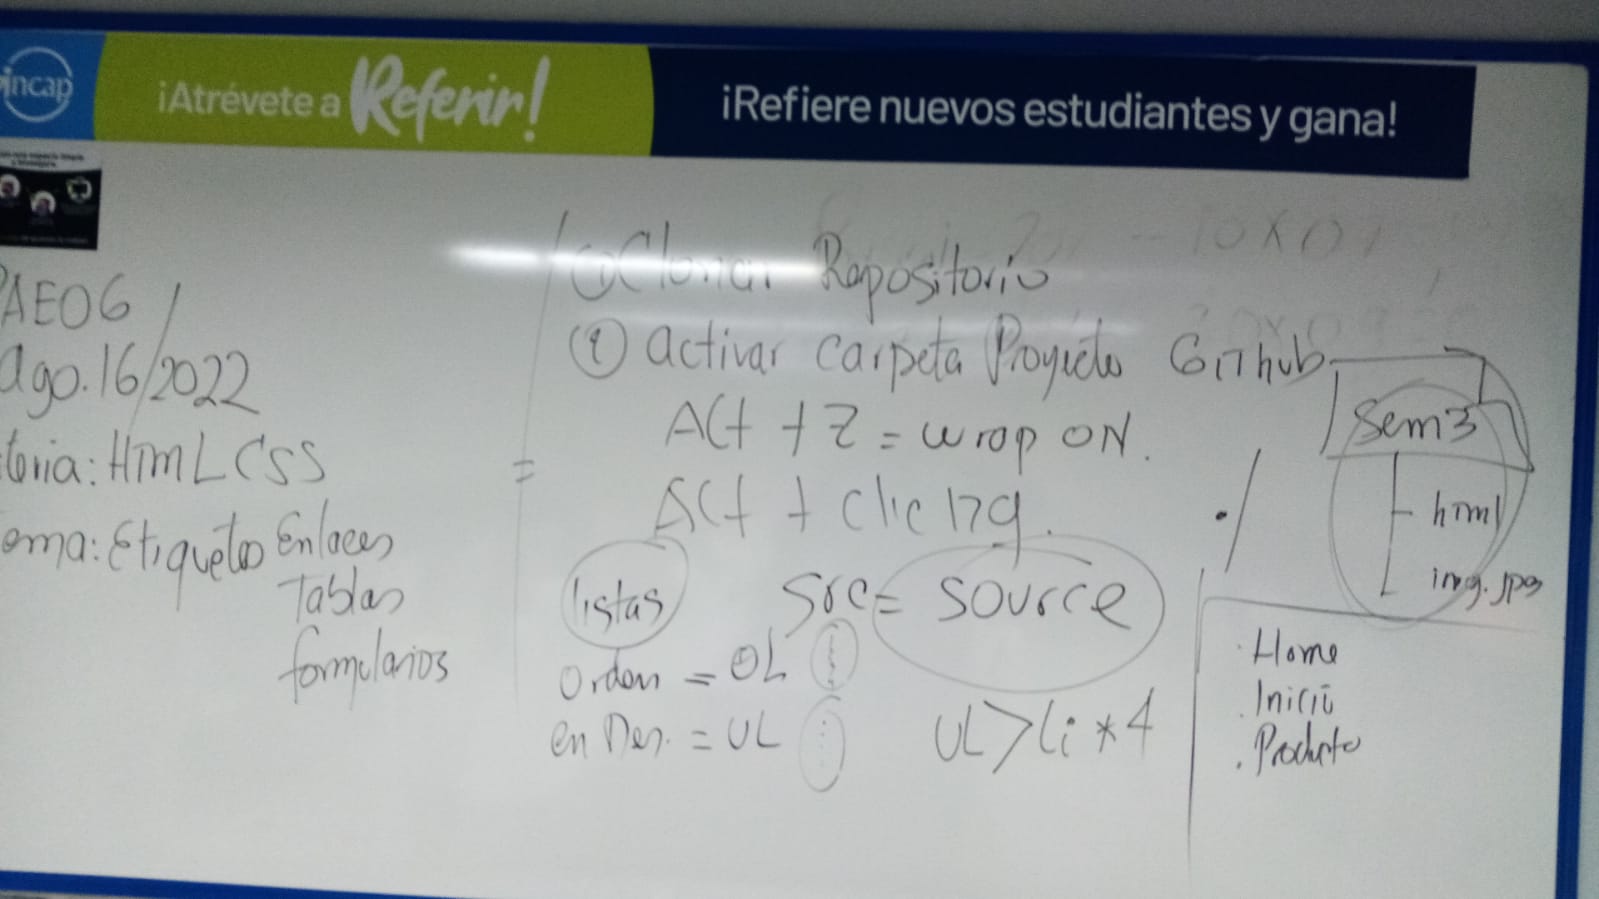 incap
¡Atrévete a Referir!
¡Refiere nuevos estudiantes y gana!
AE06
Ago.16/2022
toria: HTML CSS
ema: Etiquetas Enlaces
Tablas
formularios
① Clonar Repositorio
① activar carpeta Proyecto GitHub
Alt + Z = wrap ON.
Alt + clic izq.
listas
src = source
Orden = OL
en Des. = UL
UL>li*4
./
Sem3
html
img.jpg
. Home
. Inicio
. Producto